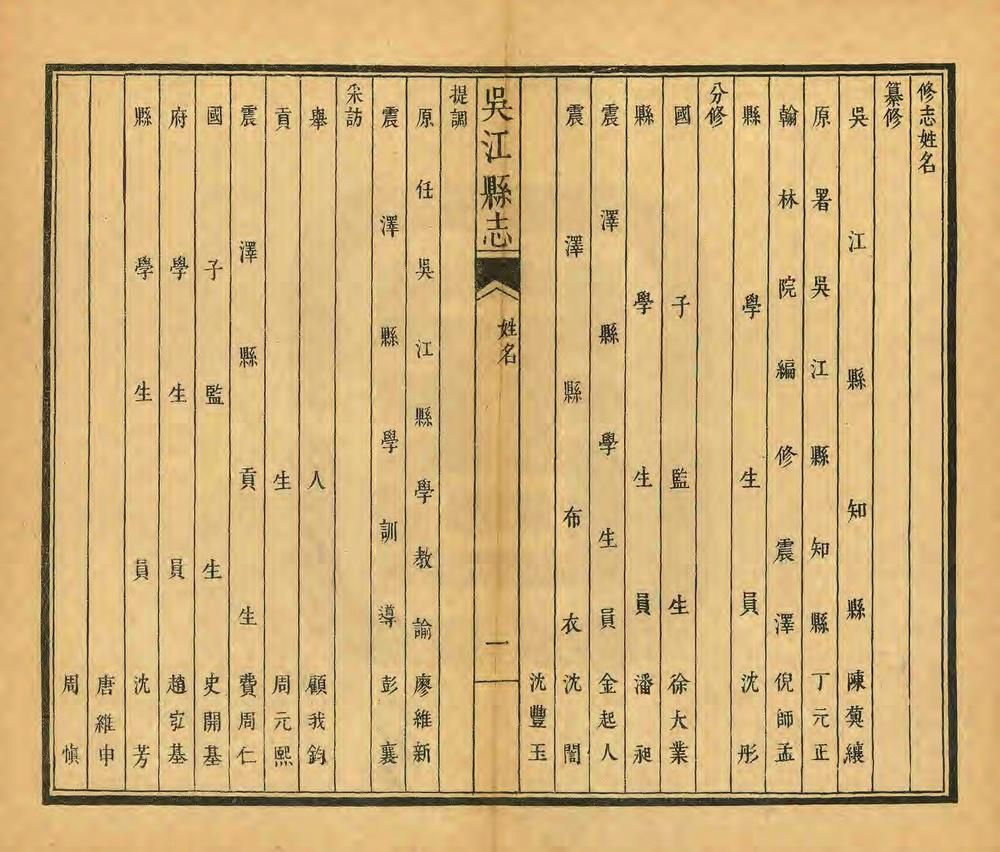 修志姓名
纂修
吳江縣知縣陳蓂纕
原署吳江縣知縣丁元正
翰林院編修震澤倪師孟
縣學生員沈彤
分修
國子監生徐大業
縣學生員潘昶
震澤縣學生員金起人
震澤縣布衣沈誾
沈豐玉
吳江縣志
姓名
一
提調
原任吳江縣學教諭廖維新
震澤縣學訓導彭襄
采訪
舉人顧我鈞
貢生周元熙
震澤縣貢生費周仁
國子監生史開基
府學生員趙宏基
縣學生員沈芳
唐維申
周愼